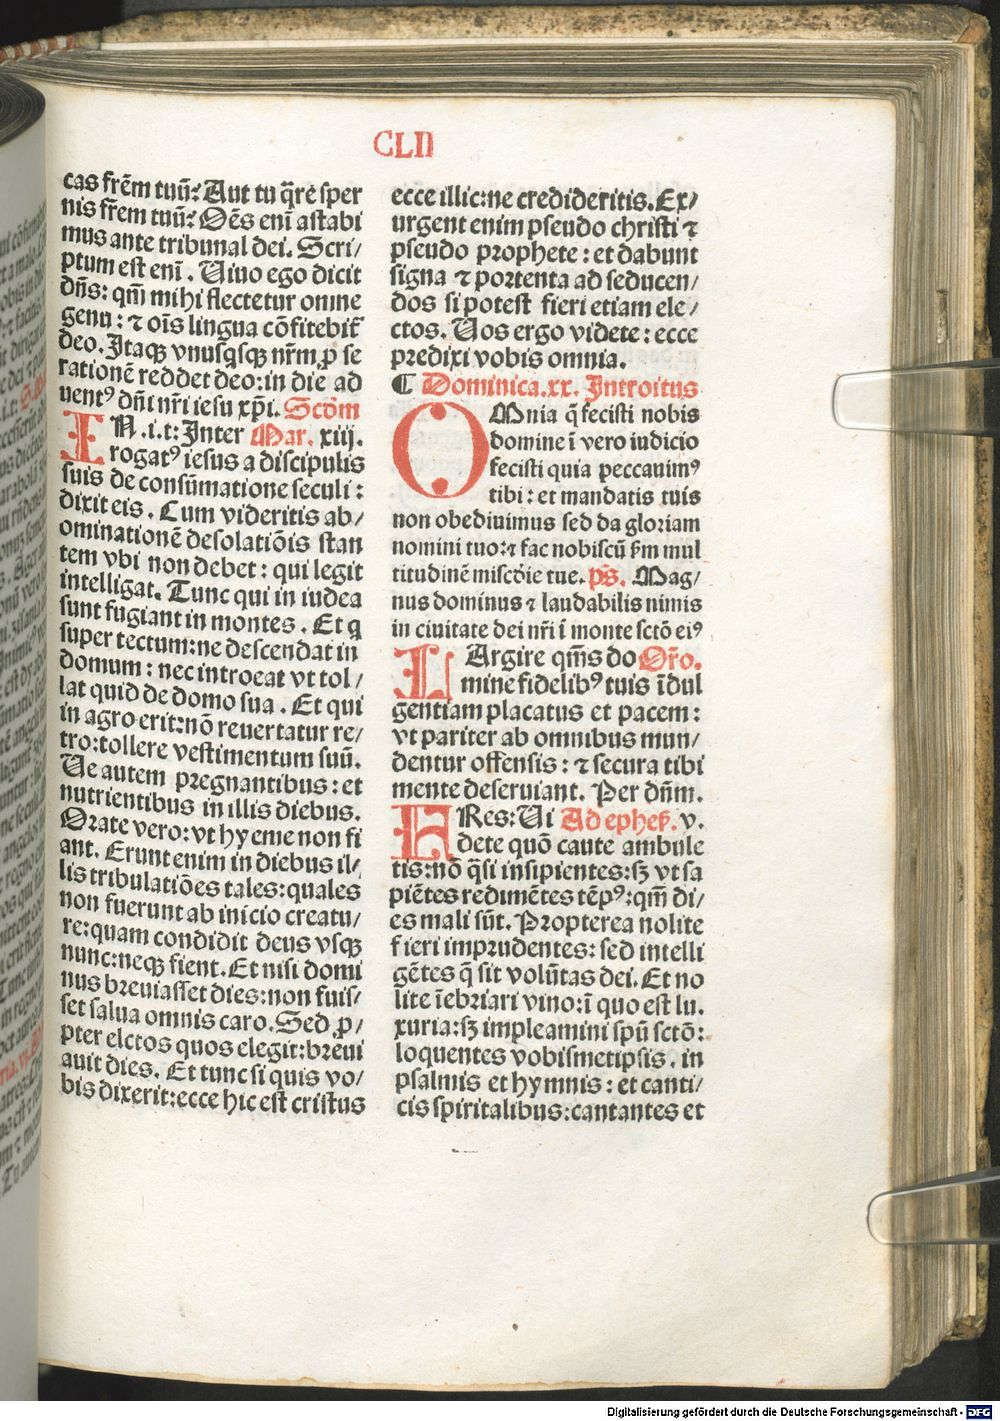 CLII
cas frēm tuū? Aut tu q̄re sper
nis frēm tuū? Oēs eni̅ astabi
mus ante tribunal dei. Scri/
ptum est eni̅. Uiuo ego dicit
dn̄s: qm̄ mihi flectetur omne
genu: ⁊ oi̅s lingua cōfitebit̄
deo. Itaqꝫ vnusq̄sqꝫ nr̄m ꝓ se
rationē reddet deo: in die ad
uentꝰ dn̄i nr̄i iesu xp̄i. Scd̄m
IN .i.t: Inter Mar. xiij.
rogatꝰ iesus a discipulis
suis de consūmatione seculi:
dixit eis. Cum videritis ab/
ominationē desolatiōis stan
tem vbi non debet: qui legit
intelligat. Tunc qui in iudea
sunt fugiant in montes. Et q
super tectum: ne descendat in
domum: nec introeat vt tol/
lat quid de domo sua. Et qui
in agro erit: nō reuertatur re/
tro: tollere vestimentum suū.
Ue autem pregnantibus: et
nutrientibus in illis diebus.
Orate vero: vt hyeme non fi
ant. Erunt enim in diebus il/
lis tribulatiōes tales: quales
non fuerunt ab inicio creatu/
re: quam condidit deus vsqꝫ
nunc: neqꝫ fient. Et nisi domi
nus breuiasset dies: non fuis/
set salua omnis caro. Sed ꝓ/
pter elctos quos elegit: breui
auit dies. Et tunc si quis vo/
bis dixerit: ecce hic est cristus
ecce illic: ne credideritis. Ex/
urgent enim pseudo christi ⁊
pseudo prophete: et dabunt
signa ⁊ portenta ad seducen/
dos si potest fieri etiam ele/
ctos. Uos ergo videte: ecce
predixi vobis omnia.
¶ Dominica.xx. Introitus
OMnia q̄ fecisti nobis
domine i̅ vero iudicio
fecisti quia peccauimꝰ
tibi: et mandatis tuis
non obediuimus sed da gloriam
nomini tuo: ⁊ fac nobiscū ẜm mul
titudinē misc̄die tue. ps̄. Mag/
nus dominus ⁊ laudabilis nimis
in ciuitate dei nr̄i i̅ monte sctō eiꝰ
LArgire qm̄s do Or̄o.
mine fidelibꝰ tuis i̅dul
gentiam placatus et pacem:
vt pariter ab omnibus mun/
dentur offensis: ⁊ secura tibi
mente deseruiant. Per dn̄m.
FRes: Ui Ad ephes̄. v.
dete quō caute ambule
tis: nō q̄si insipientes: sꝫ vt sa
piētes redimētes tēpꝰ: qm̄ di/
es mali sūt. Propterea nolite
fieri imprudentes: sed intelli
gētes q̄ sit volūtas dei. Et no
lite i̅ebriari vino: i̅ quo est lu.
xuria: sꝫ impleamini spū sctō:
loquentes vobismetipsis. in
psalmis et hymnis: et canti/
cis spiritalibus: cantantes et
Digitalisierung gefördert durch die Deutsche Forschungsgemeinschaft - DFG